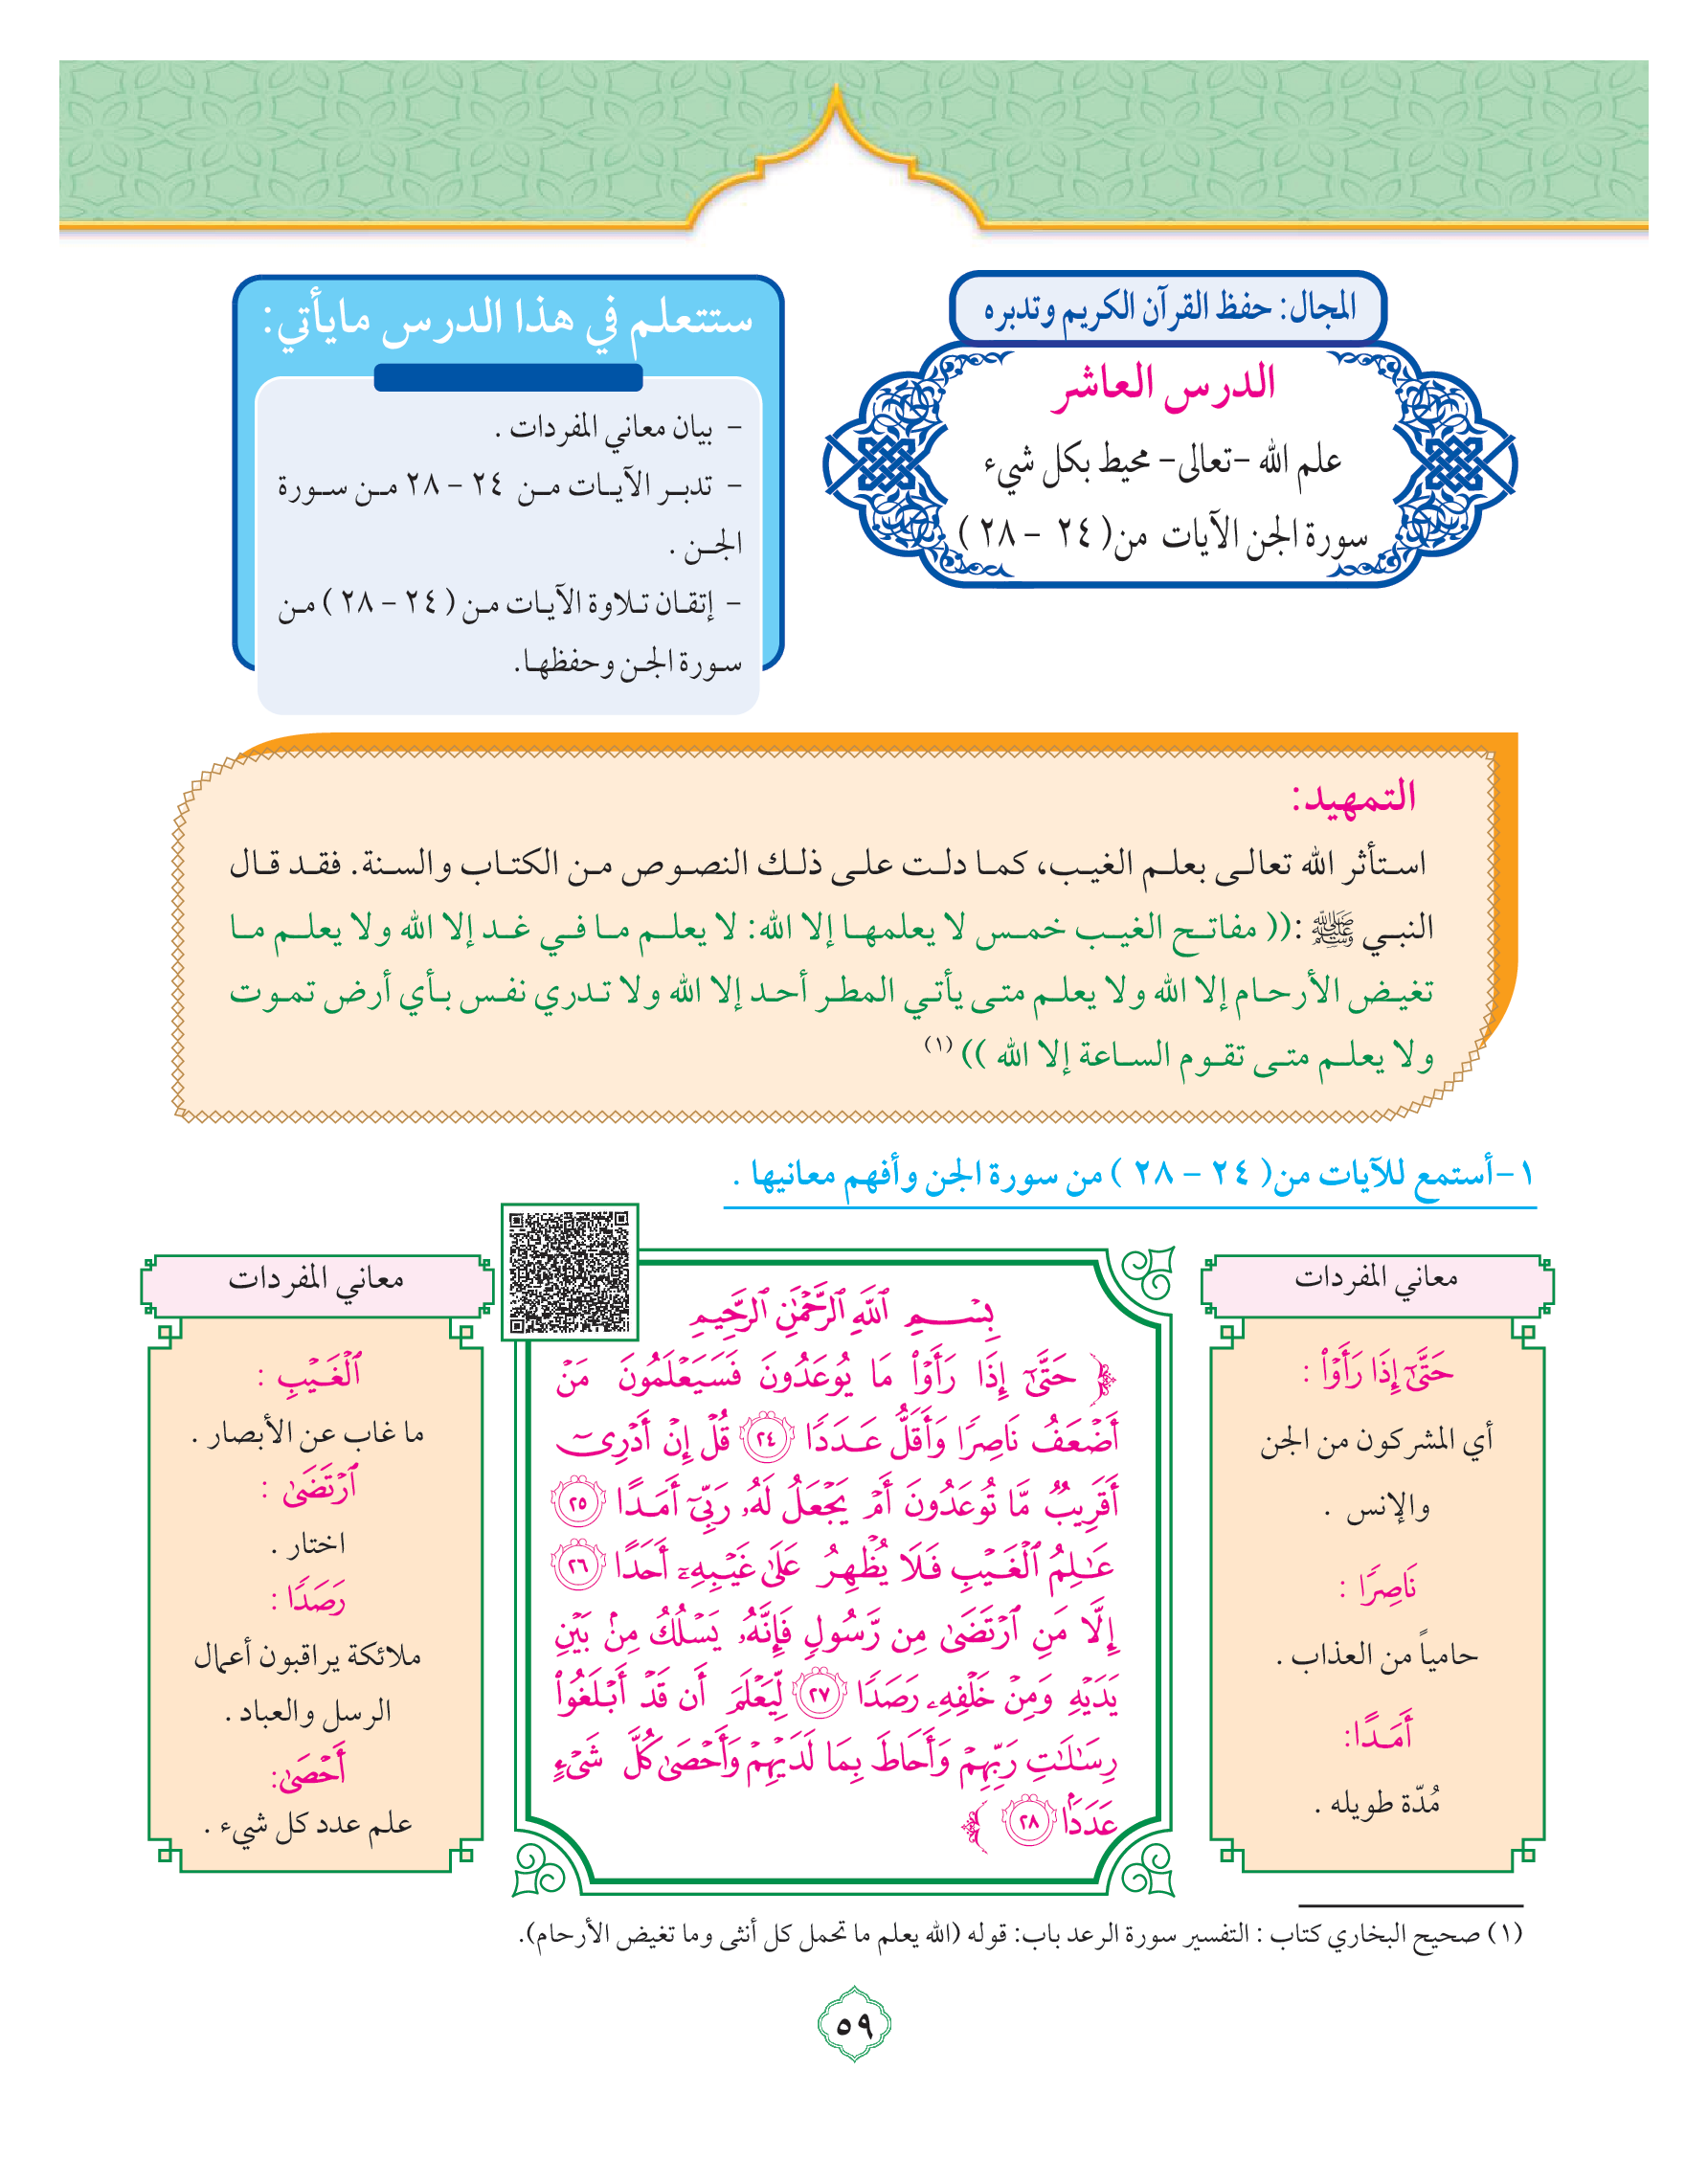 المجال: حفظ القرآن الكريم وتدبره
الدرس العاشر
علم الله -تعالى- محيط بكل شيء
سورة الجن الآيات من( ٢٤ - ٢٨ )
ستتعلم في هذا الدرس مايأتي:
- بيان معاني المفردات .
- تدبر الآيات من ٢٤ - ٢٨ من سورة
الجن .
- إتقان تلاوة الآيات من ( ٢٤ - ٢٨ ) من
سورة الجن وحفظها.
التمهيد:
استأثر الله تعالى بعلم الغيب، كما دلت على ذلك النصوص من الكتاب والسنة. فقد قال
النبي ﷺ :(( مفاتح الغيب خمس لا يعلمها إلا الله: لا يعلم ما في غد إلا الله ولا يعلم ما
تغيض الأرحام إلا الله ولا يعلم متى يأتي المطر أحد إلا الله ولا تدري نفس بأي أرض تموت
ولا يعلم متى تقوم الساعة إلا الله )) (١)
١-أستمع للآيات من( ٢٤ - ٢٨ ) من سورة الجن وأفهم معانيها .
معاني المفردات
حَتَّىٰٓ إِذَا رَأَوۡاْ :
أي المشركون من الجن
والإنس .
نَاصِرٗا :
حامياً من العذاب .
أَمَدًا:
مُدّة طويله .
بِسۡمِ ٱللَّهِ ٱلرَّحۡمَٰنِ ٱلرَّحِيمِ
﴿ حَتَّىٰٓ إِذَا رَأَوۡاْ مَا يُوعَدُونَ فَسَيَعۡلَمُونَ مَنۡ
أَضۡعَفُ نَاصِرٗا وَأَقَلُّ عَدَدٗا ٢٤ قُلۡ إِنۡ أَدۡرِيٓ
أَقَرِيبٞ مَّا تُوعَدُونَ أَمۡ يَجۡعَلُ لَهُۥ رَبِّيٓ أَمَدًا ٢٥
عَٰلِمُ ٱلۡغَيۡبِ فَلَا يُظۡهِرُ عَلَىٰ غَيۡبِهِۦٓ أَحَدًا ٢٦
إِلَّا مَنِ ٱرۡتَضَىٰ مِن رَّسُولٖ فَإِنَّهُۥ يَسۡلُكُ مِنۢ بَيۡنِ
يَدَيۡهِ وَمِنۡ خَلۡفِهِۦ رَصَدٗا ٢٧ لِّيَعۡلَمَ أَن قَدۡ أَبۡلَغُواْ
رِسَٰلَٰتِ رَبِّهِمۡ وَأَحَاطَ بِمَا لَدَيۡهِمۡ وَأَحۡصَىٰ كُلَّ شَيۡءٍ
عَدَدَۢا ٢٨ ﴾
معاني المفردات
ٱلۡغَيۡبِ :
ما غاب عن الأبصار .
ٱرۡتَضَىٰ :
اختار .
رَصَدٗا :
ملائكة يراقبون أعمال
الرسل والعباد .
أَحۡصَىٰ:
علم عدد كل شيء .
(١) صحيح البخاري كتاب : التفسير سورة الرعد باب: قوله (الله يعلم ما تحمل كل أنثى وما تغيض الأرحام).
٥٩